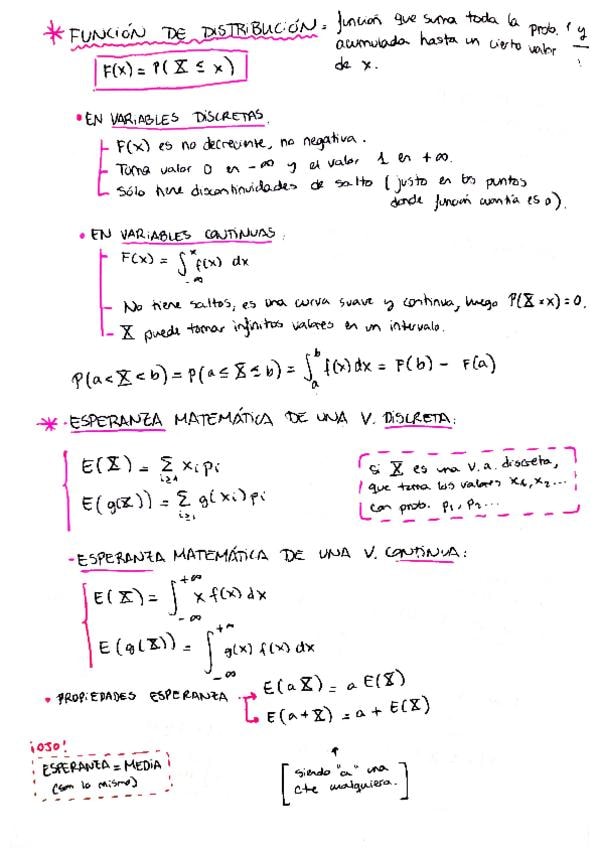 * FUNCIÓN DE DISTRIBUCIÓN = función que suma toda la prob.
acumulada hasta un cierto valor
de x.
F(x) = P(X ≤ x)
• EN VARIABLES DISCRETAS.
- F(x) es no decreciente, no negativa.
- Toma valor 0 en -∞ y el valor 1 en +∞.
- Sólo tiene discontinuidades de salto (justo en los puntos
donde función cuantía es 0).
• EN VARIABLES CONTINUAS:
- F(x) = ∫_{-∞}^{x} f(x) dx
- No tiene saltos, es una curva suave y continua, luego P(X=x)=0.
- X puede tomar infinitos valores en un intervalo.
P(a<X<b) = P(a≤X≤b) = ∫_a^b f(x)dx = F(b) - F(a)
* - ESPERANZA MATEMÁTICA DE UNA V. DISCRETA:
E(X) = Σ_{i≥1} xi pi
E(g(X)) = Σ_{i≥1} g(xi) pi
Si X es una v.a. discreta,
que toma los valores x1, x2...
con prob. p1, p2...
- ESPERANZA MATEMÁTICA DE UNA V. CONTINUA:
E(X) = ∫_{-∞}^{+∞} x f(x) dx
E(g(X)) = ∫_{-∞}^{+∞} g(x) f(x) dx
• PROPIEDADES ESPERANZA → E(aX) = a E(X)
→ E(a+X) = a + E(X)
¡OJO!
ESPERANZA = MEDIA
(son lo mismo)
↑
[siendo "a" una
cte cualquiera.]